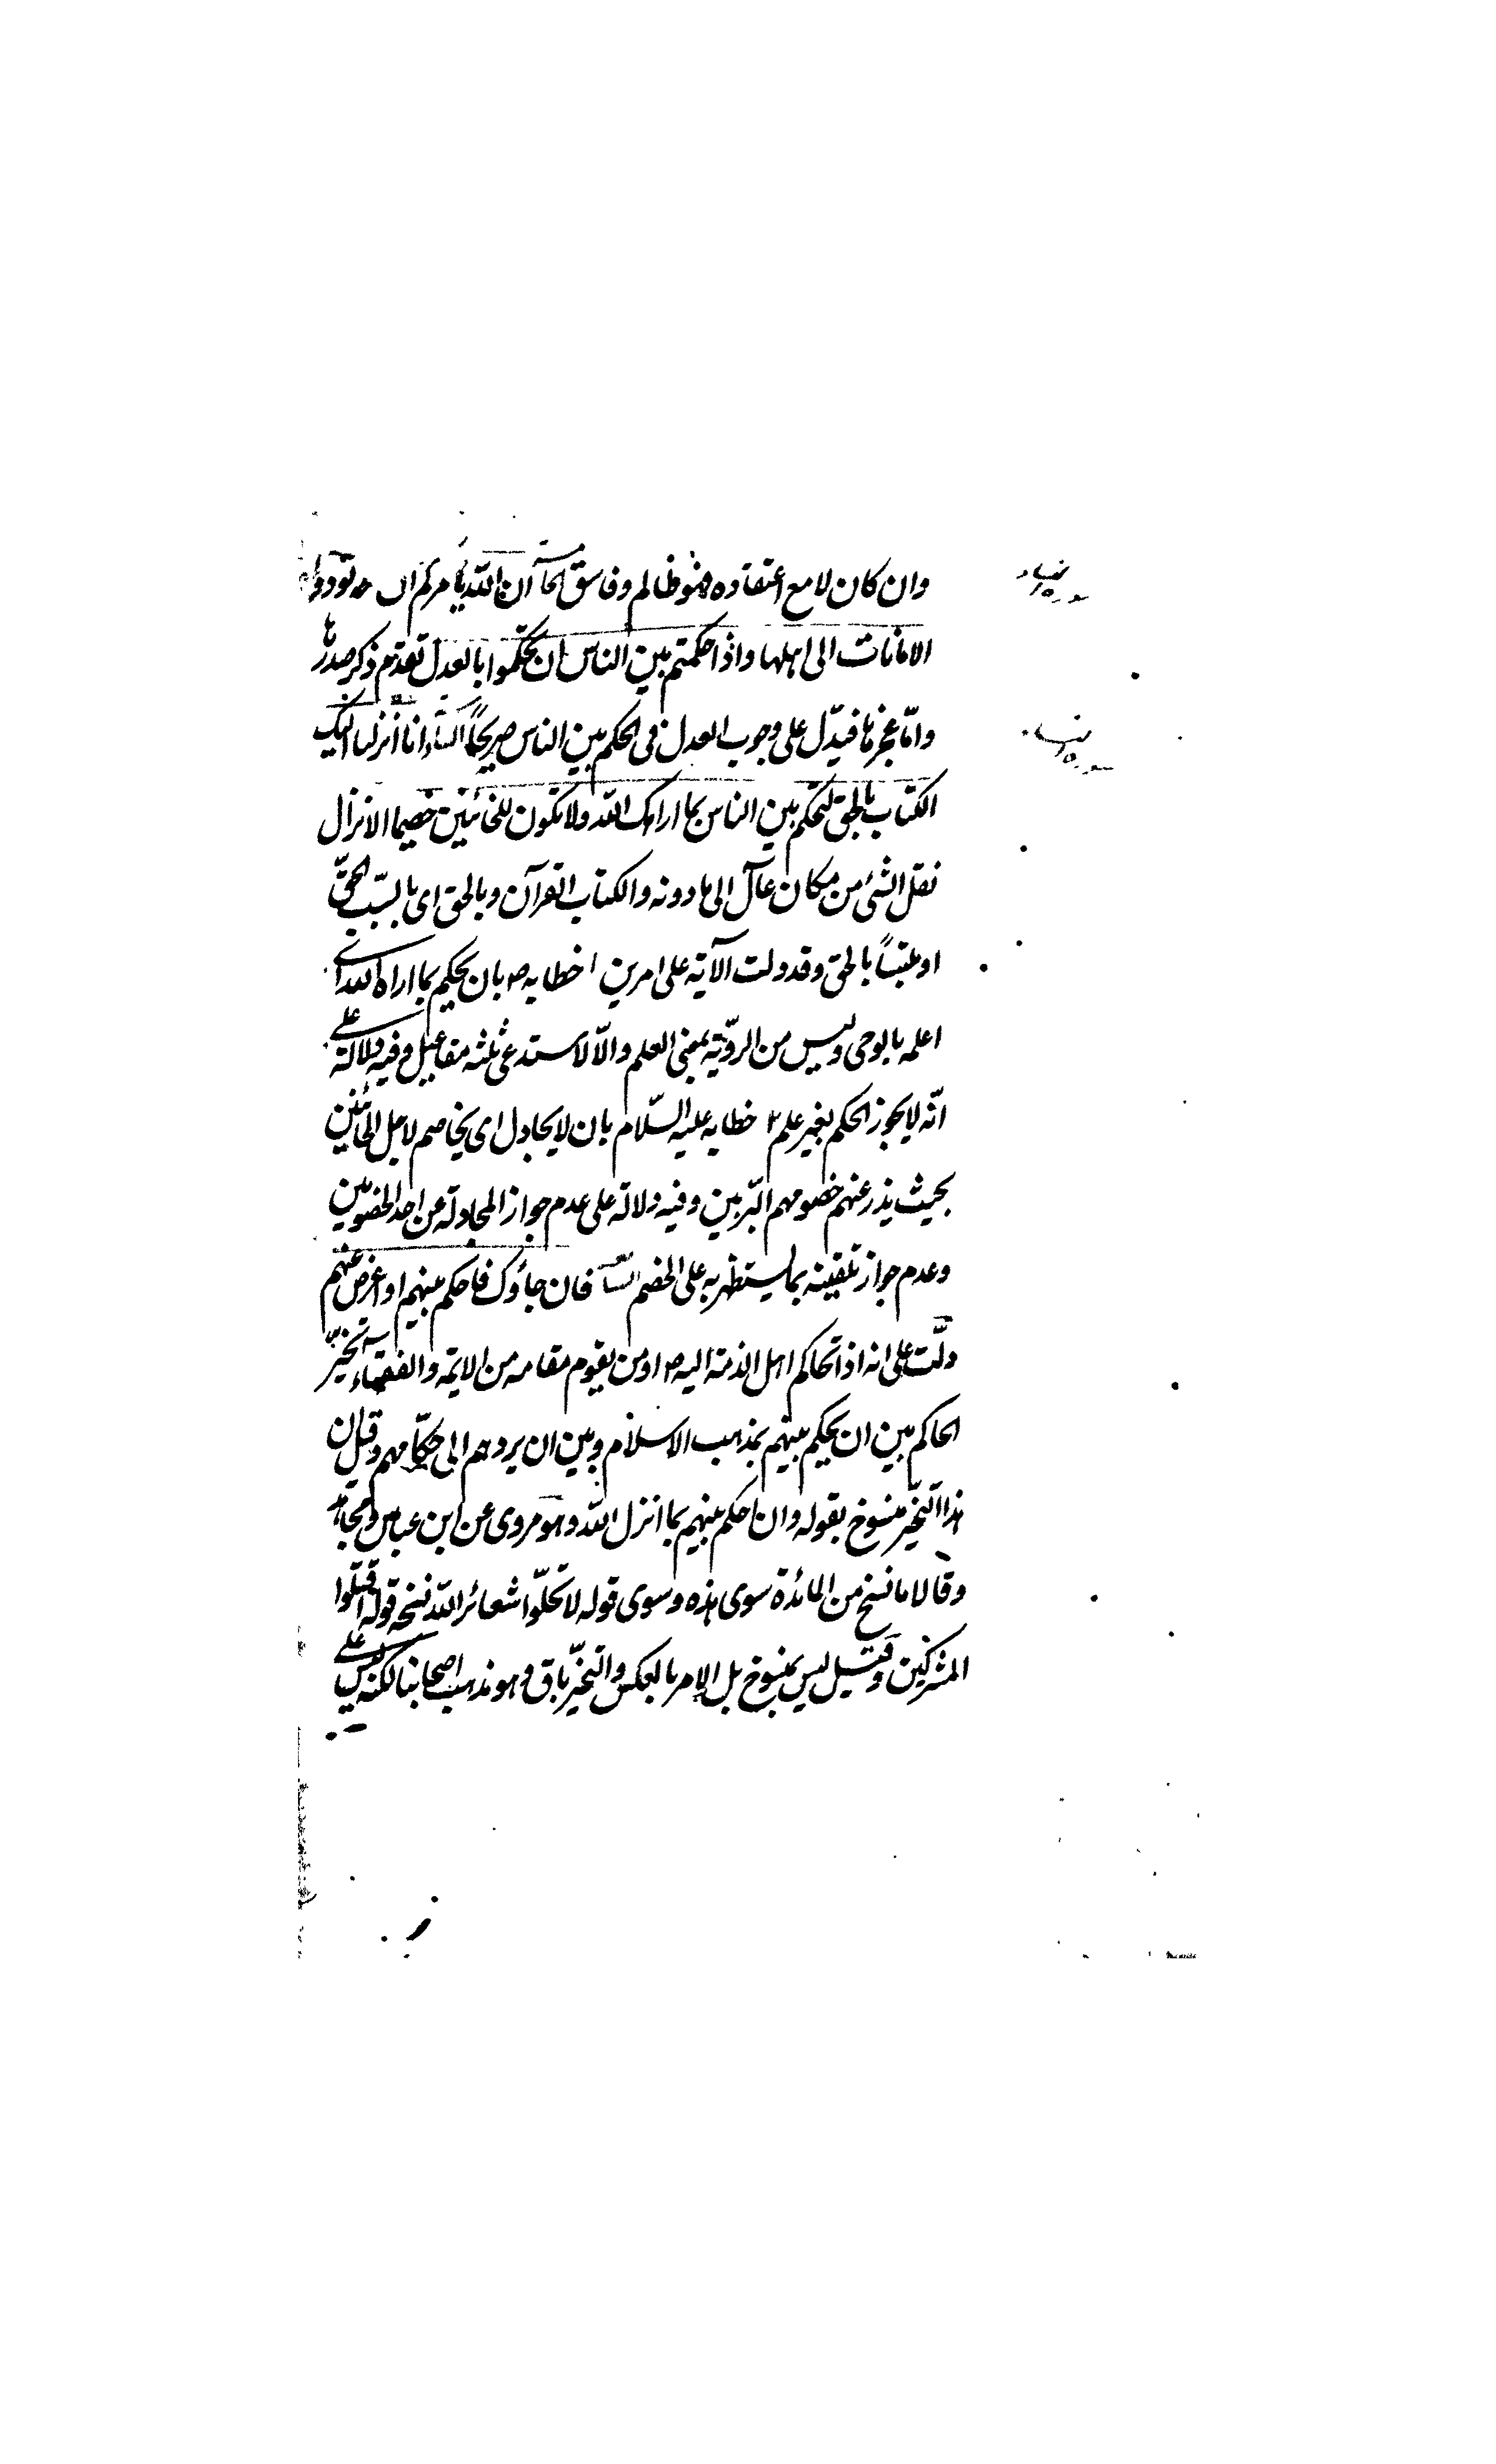 وان كان لا مع اعتقاده فهو ظالم وفاسق ان الله يأمركم ان تؤدوا
سورة النساء
الامانات الى اهلها واذا حكمتم بين الناس ان تحكموا بالعدل تقدم ذكر صدرها
واما عجزها فيدل على وجوب العدل فى الحكم بين الناس صريحاً انا انزلنا اليك
سورة النساء
الكتاب بالحق لتحكم بين الناس بما اراك الله ولا تكون للخائنين خصيما الانزال
نقل الشئ من مكان عال الى ما دونه والكتاب القرآن وبالحق اى بالسبب الحق
او ملتبساً بالحق وقد دلت الآية على امرين ١ خطابه ص بان يحكم بما اراه الله اى
اعلمه بالوحى وليس من الرؤية بمعنى العلم والا لاستدعى ثلثه مفاعيل وفيه دلالة على
انه لا يجوز الحكم بغير علم ٢ خطابه عليه السلام بان لا يجادل اى يخاصم لاجل الخائنين
بحيث يذر عنهم خصومهم البريين وفيه دلالة على عدم جواز المجادلة عن احد الخصومين
وعدم جواز تلقينه بما يستظهر به على الخصم فان جاؤك فاحكم بينهم او اعرض عنهم
دلت على انه اذا تحاكم اهل الذمة اليه ص او من يقوم مقامه من الايمة والفقهاء تخير
الحاكم بين ان يحكم بينهم بمذهب الاسلام وبين ان يردهم الى حكامهم وقيل ان
هذا التخير منسوخ بقوله وان احكم بينهم بما انزل الله وهو مروى عن ابن عباس ومجاهد
وقالا ما نسخ من المائدة سوى هذه وسوى قوله لا تحلوا شعائر الله نسخه قوله اقتلوا
المشركين وقيل ليس بمنسوخ بل الامر بالعكس والتخير باق وهو مذهب اصحابنا لكنه ليس على